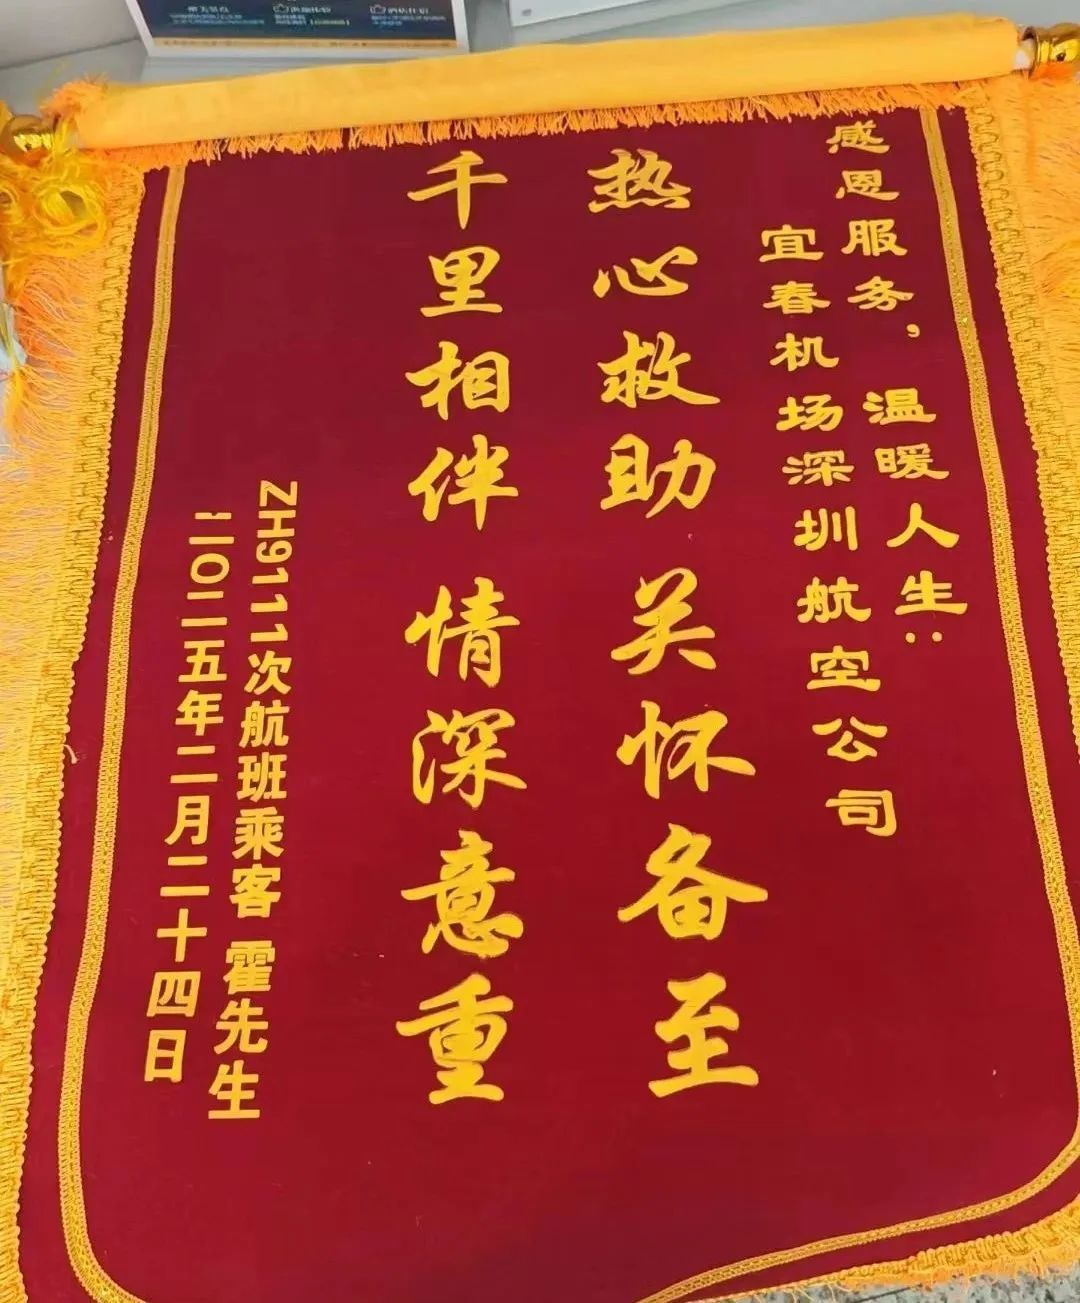 感恩服务，温暖人生：
宜春机场深圳航空公司
热心救助 关怀备至
千里相伴 情深意重
ZH9111次航班乘客 霍先生
二〇二五年二月二十四日